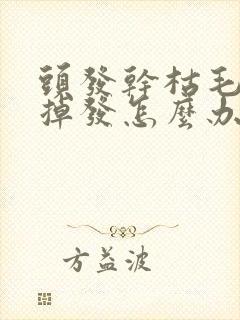 頭發幹枯毛
掉發怎麽办
方益波